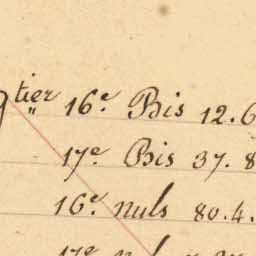 qtier 16e. Bis 12.6
17e. Bis 37.8
16e. nuls 80.4.
17e